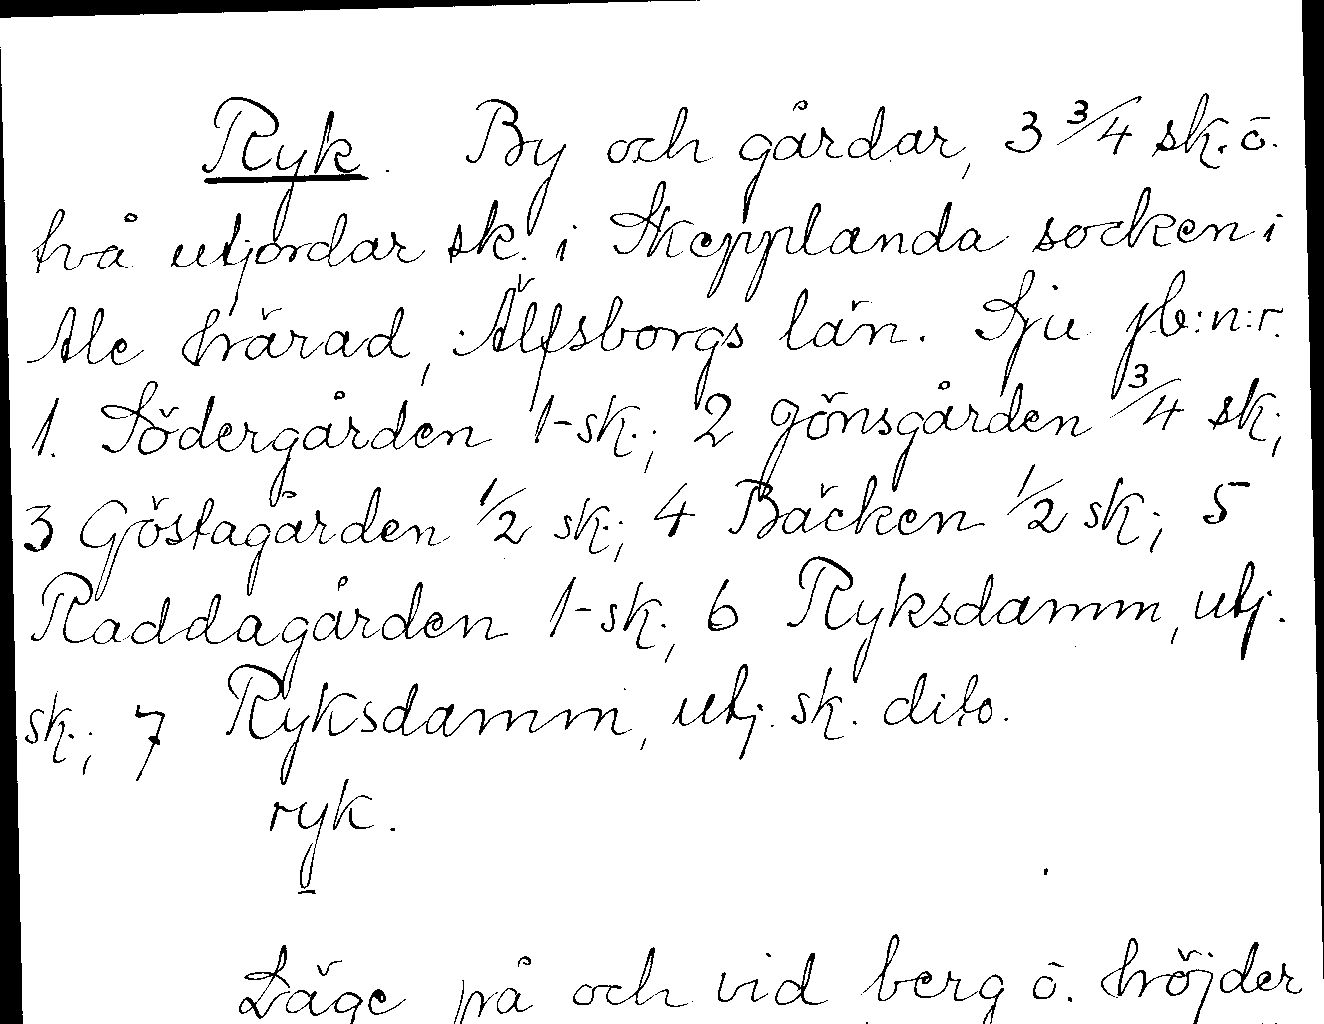 Ryk. By och gårdar, 3 3/4 sk. o.
två utjordar sk. i Skepplanda socken i
Ale härad, Älfsborgs län. Sju jb:n:r.
1. Södergården 1-sk.; 2 Gönsgården 3/4 sk;
3 Göstagården 1/2 sk.; 4 Bäcken 1/2 sk; 5
Raddagården 1-sk.; 6 Ryksdamm, utj.
sk.; 7 Ryksdamm, utj. sk. dito.
ryk.
Läge på och vid berg o. höjder